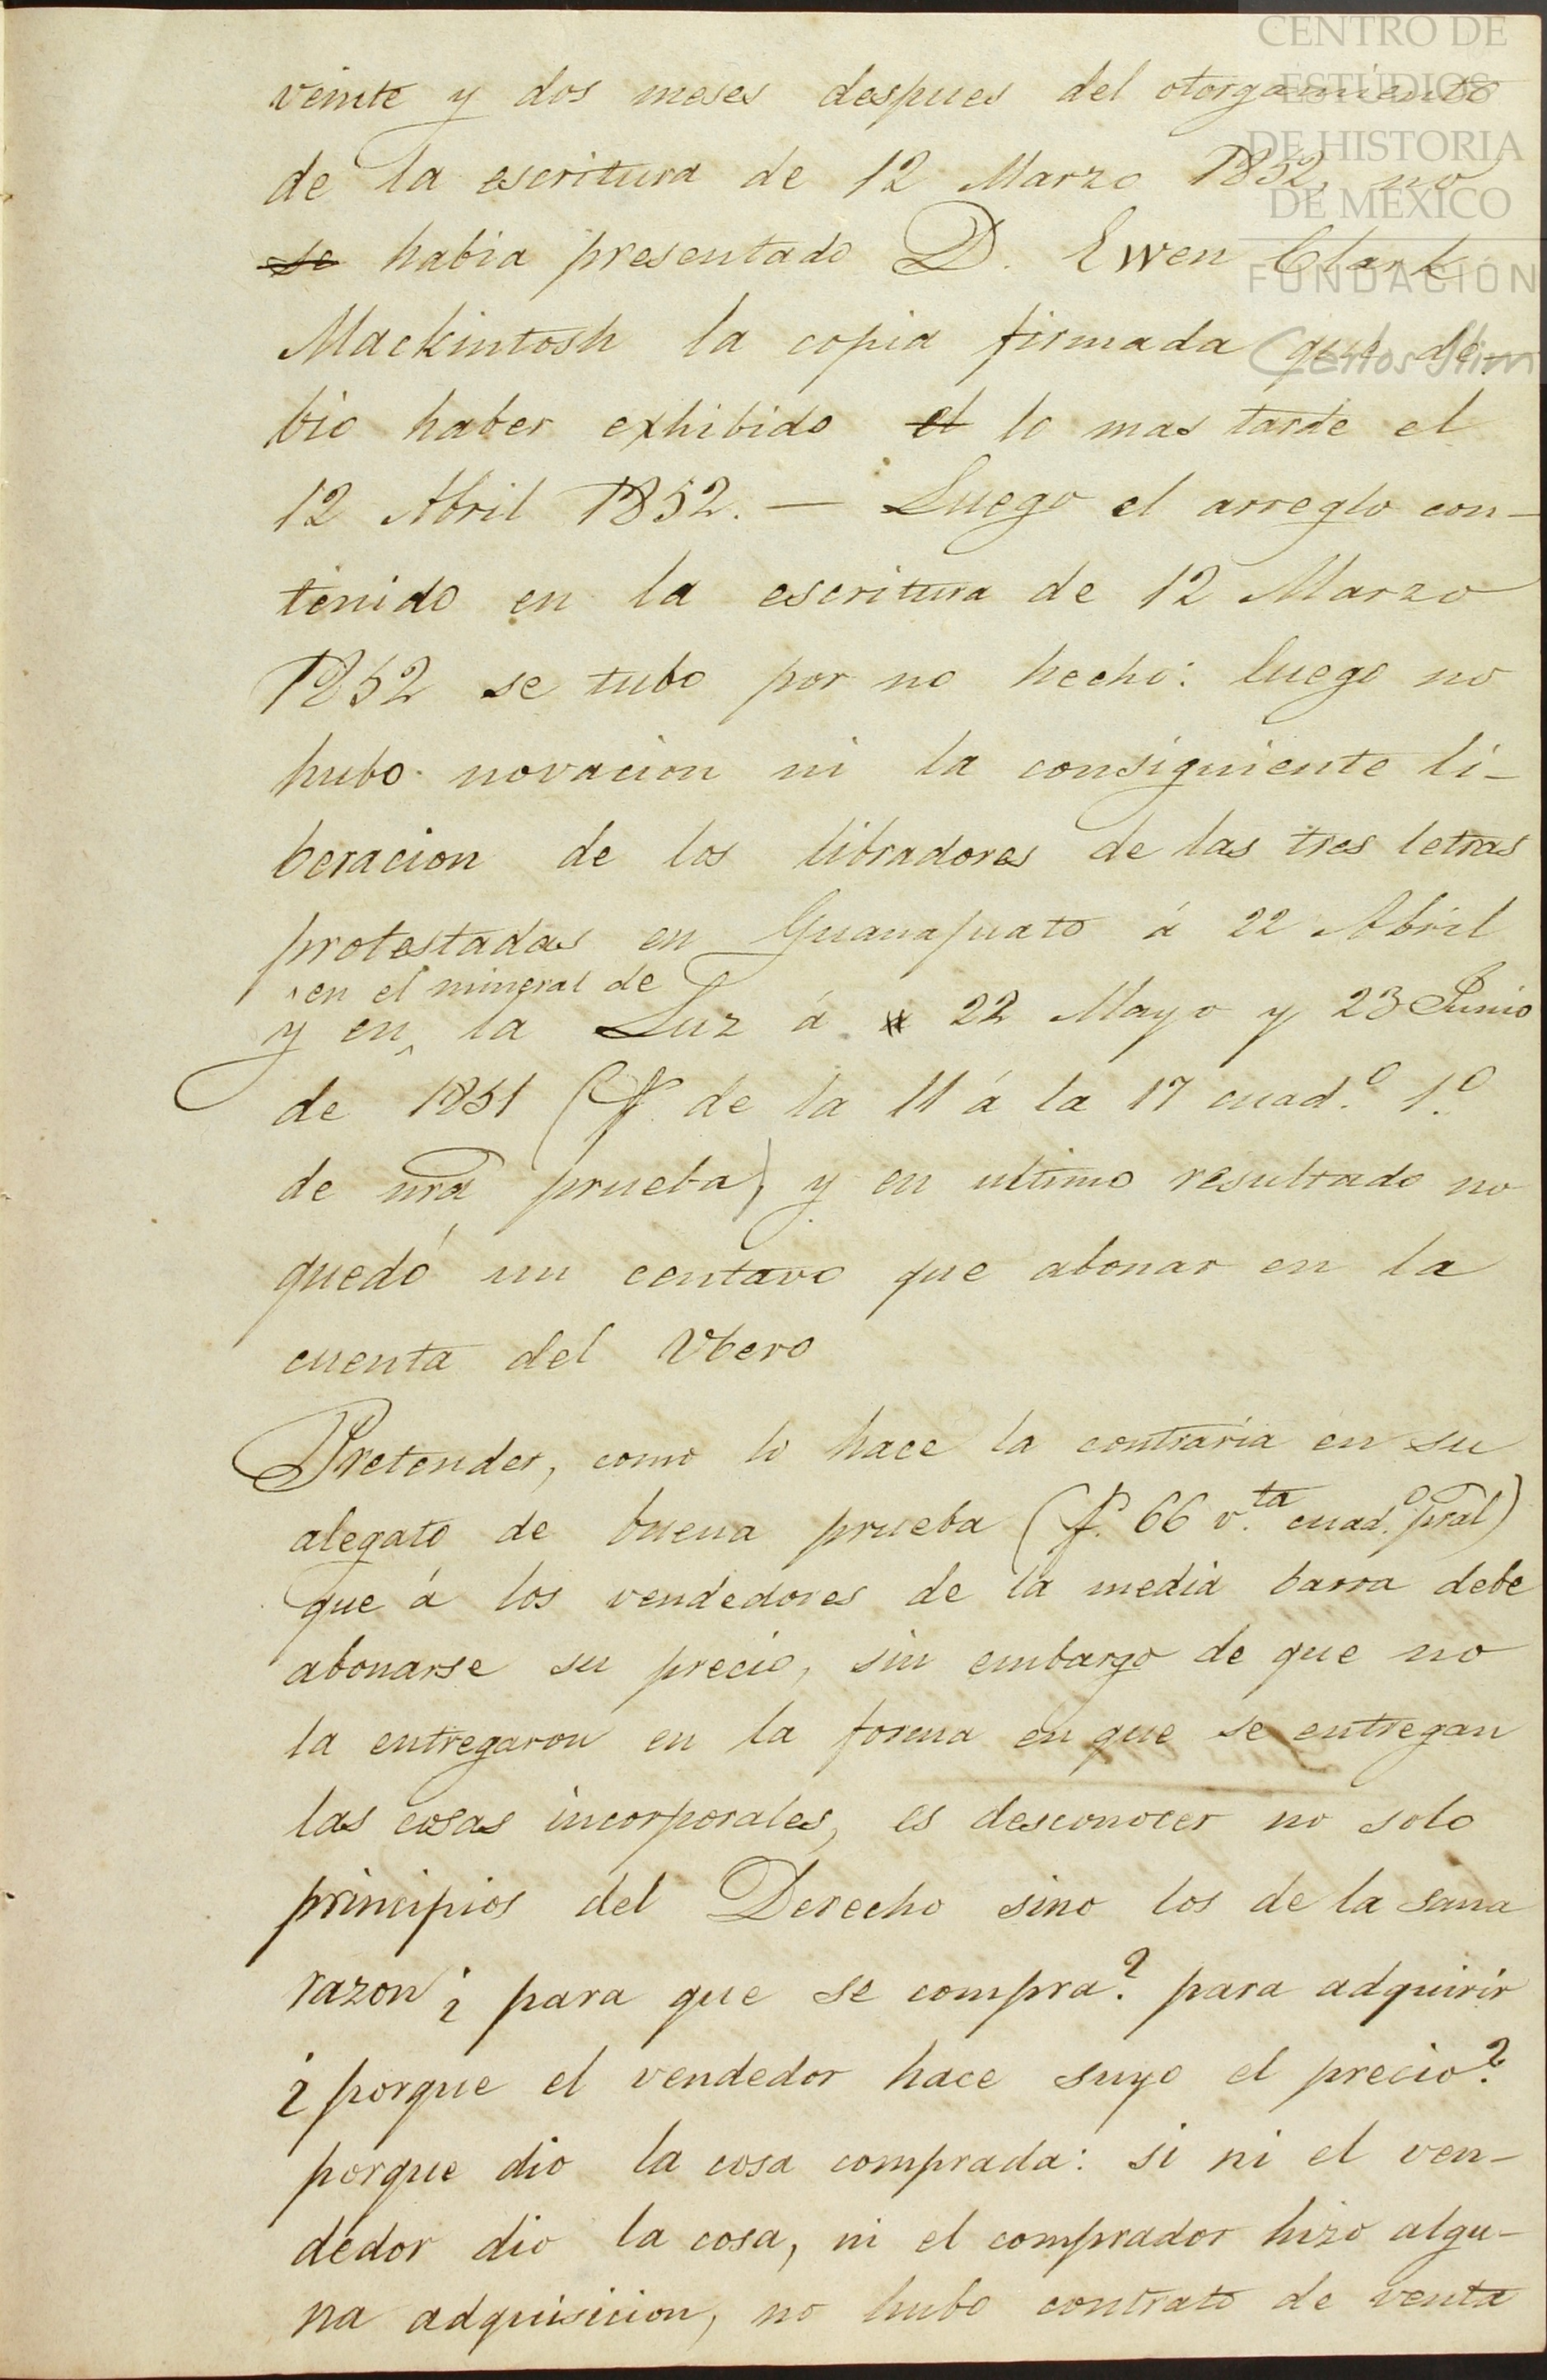 CENTRO DE
ESTUDIOS
DE HISTORIA
DE MÉXICO
FUNDACIÓN
Carlos Slim
veinte y dos meses despues del otorgamiento
de la escritura de 12 Marzo 1852, no
se habia presentado D. Ewen Clark
Mackintosh la copia firmada que de-
bio haber exhibido el lo mas tarde el
12 Abril 1852. — Luego el arreglo con-
tenido en la escritura de 12 Marzo
1852 se tubo por no hecho: luego no
hubo novacion ni la consiguiente li-
beracion de los libradores de las tres letras
protestadas en Guanajuato á 22 Abril
en el mineral de
y en la Luz á 22 Mayo y 23 Junio
de 1851 (f. de la 11 á la 17 cuad.º 1.º
de nra prueba) y en ultimo resultado no
quedó un centavo que abonar en la
cuenta del Vbero
Pretender, como lo hace la contraria en su
alegato de buena prueba (f. 66 v.ta cuad.º pral)
que á los vendedores de la media barra debe
abonarse su precio, sin embargo de que no
la entregaron en la forma en que se entregan
las cosas incorporales, es desconocer no solo
principios del Derecho sino los de la sana
razon ¿ para que se compra? para adquirir
¿ porque el vendedor hace suyo el precio?
porque dio la cosa comprada: si ni el ven-
dedor dio la cosa, ni el comprador hizo algu-
na adquisicion, no hubo contrato de venta